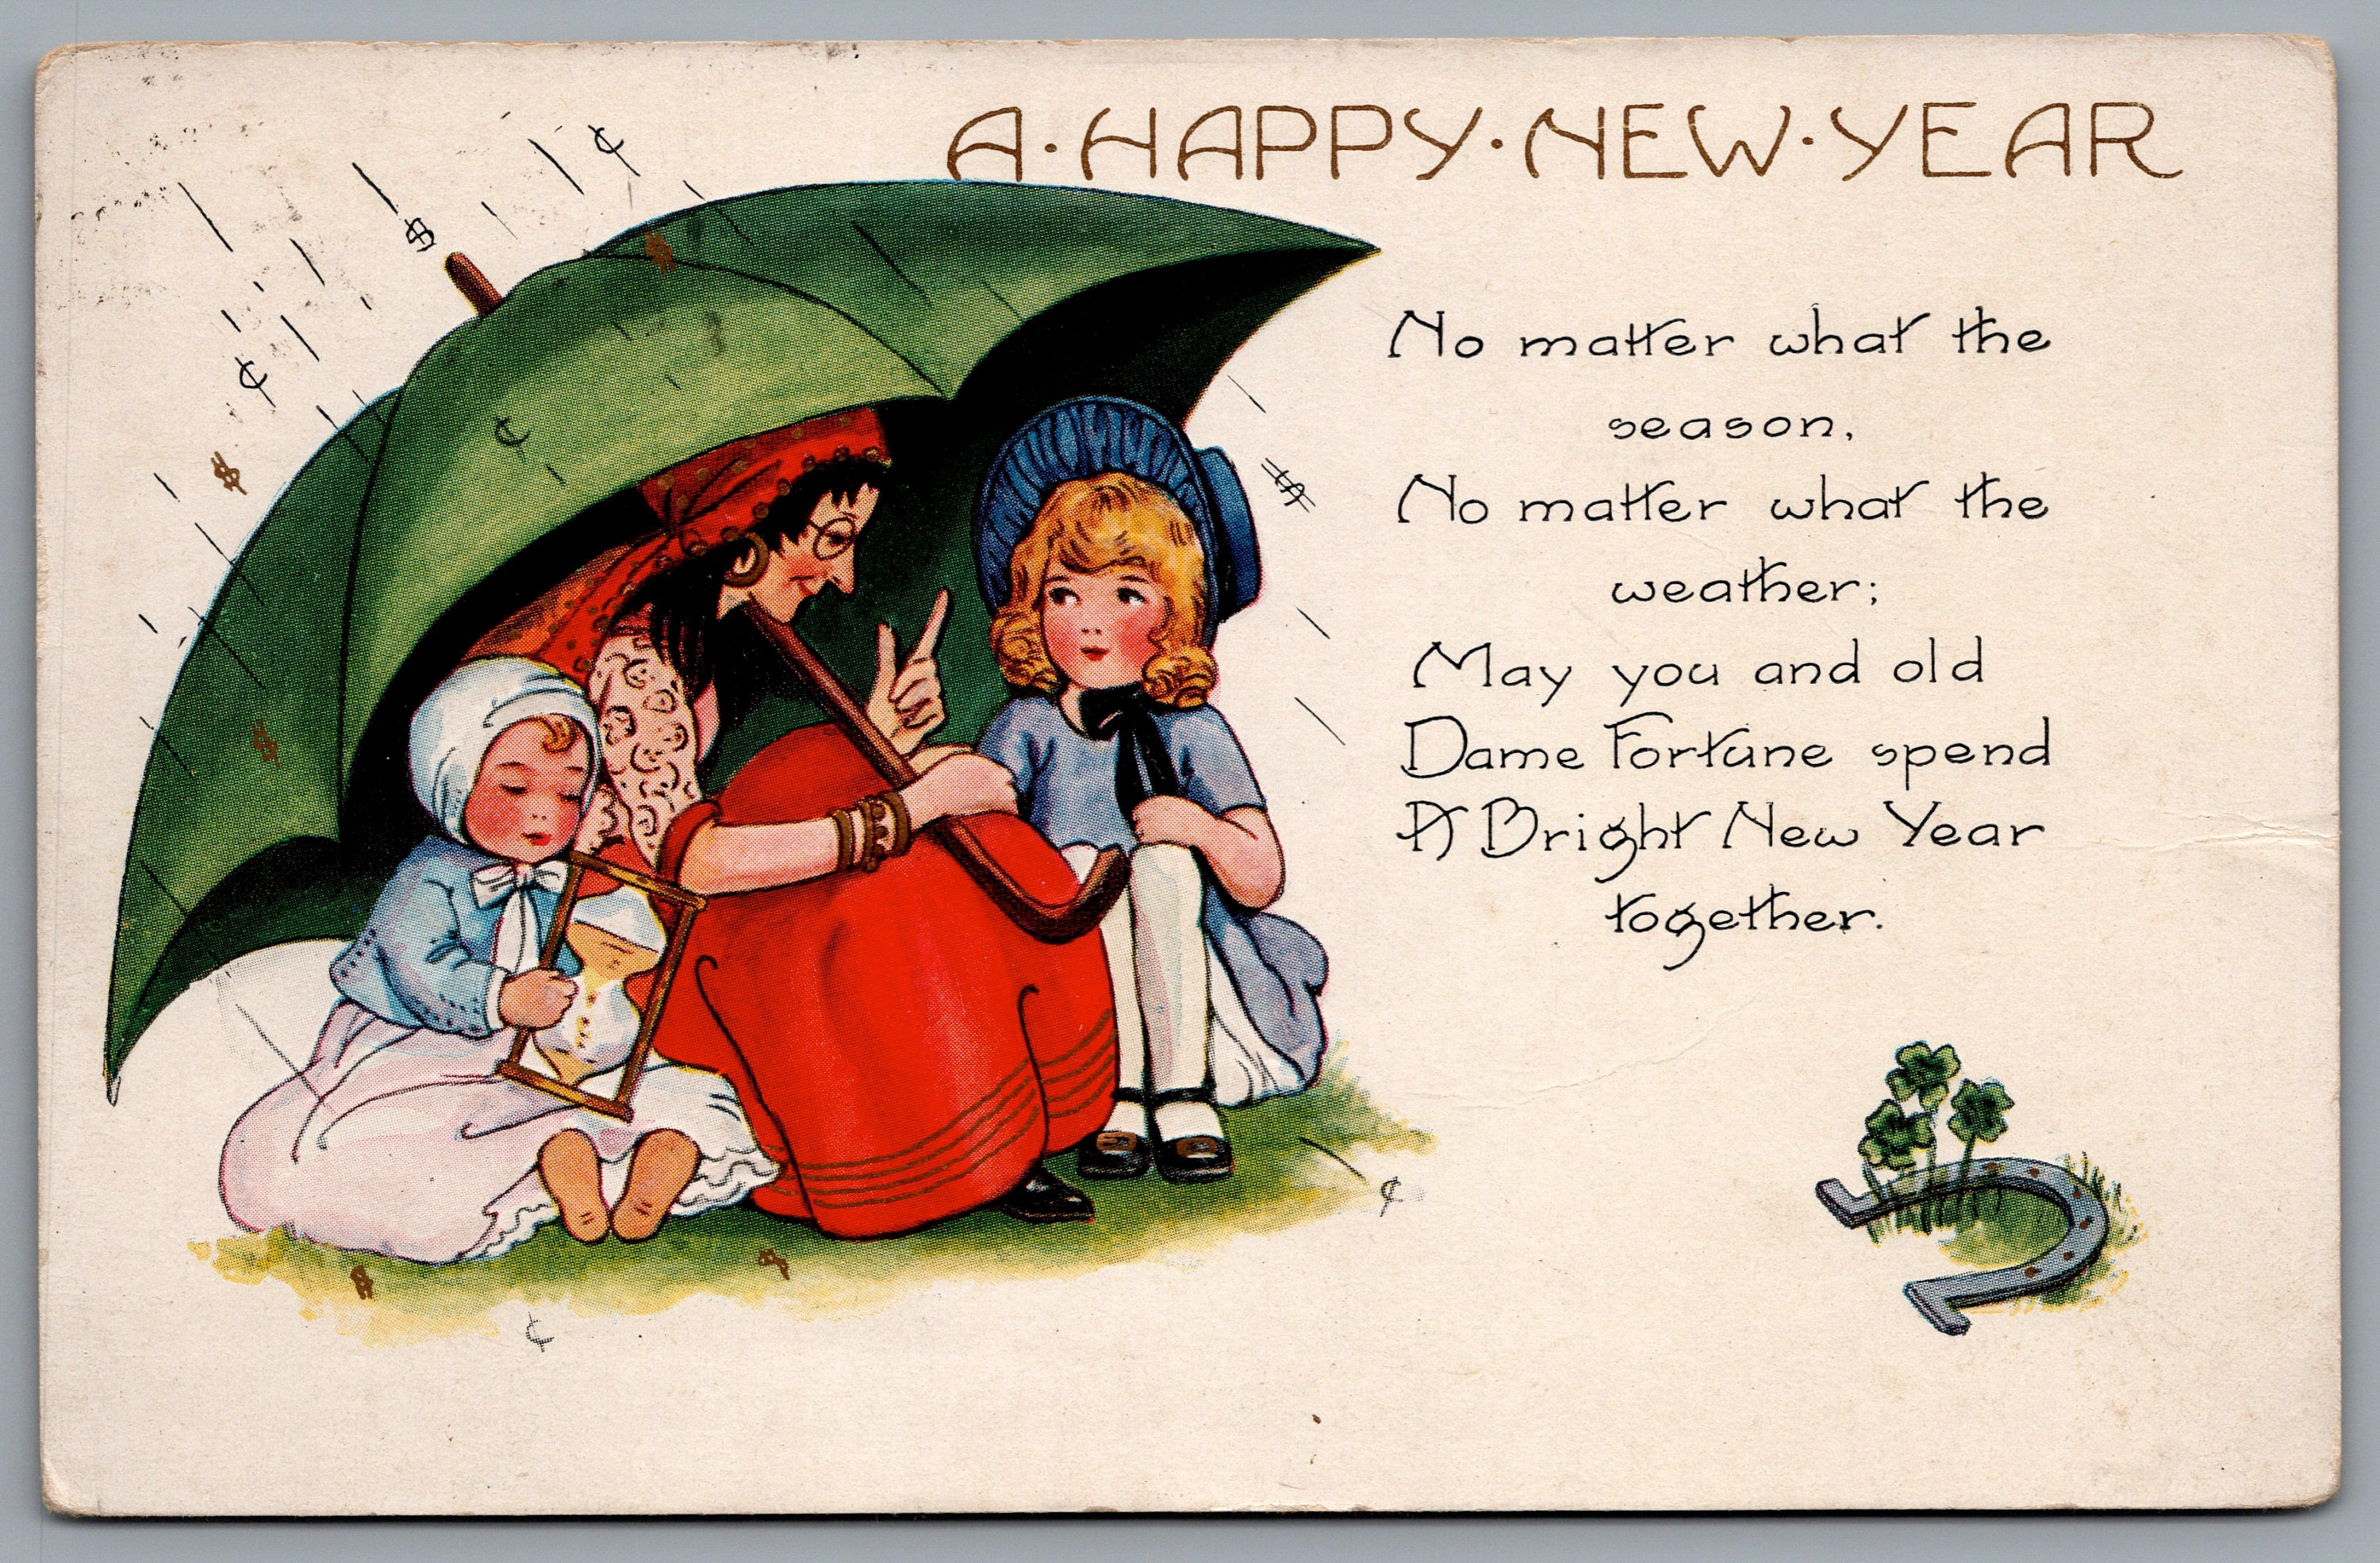 A·HAPPY·NEW·YEAR
No matter what the
season,
No matter what the
weather;
May you and old
Dame Fortune spend
A Bright New Year
together.
¢
$
$
¢
¢
$
$
$
¢
$
$
¢